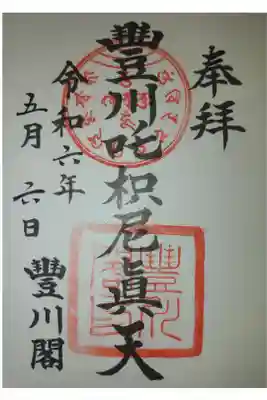 奉拝
豐川吒枳尼眞天
令和六年
五月六日
豐川閣